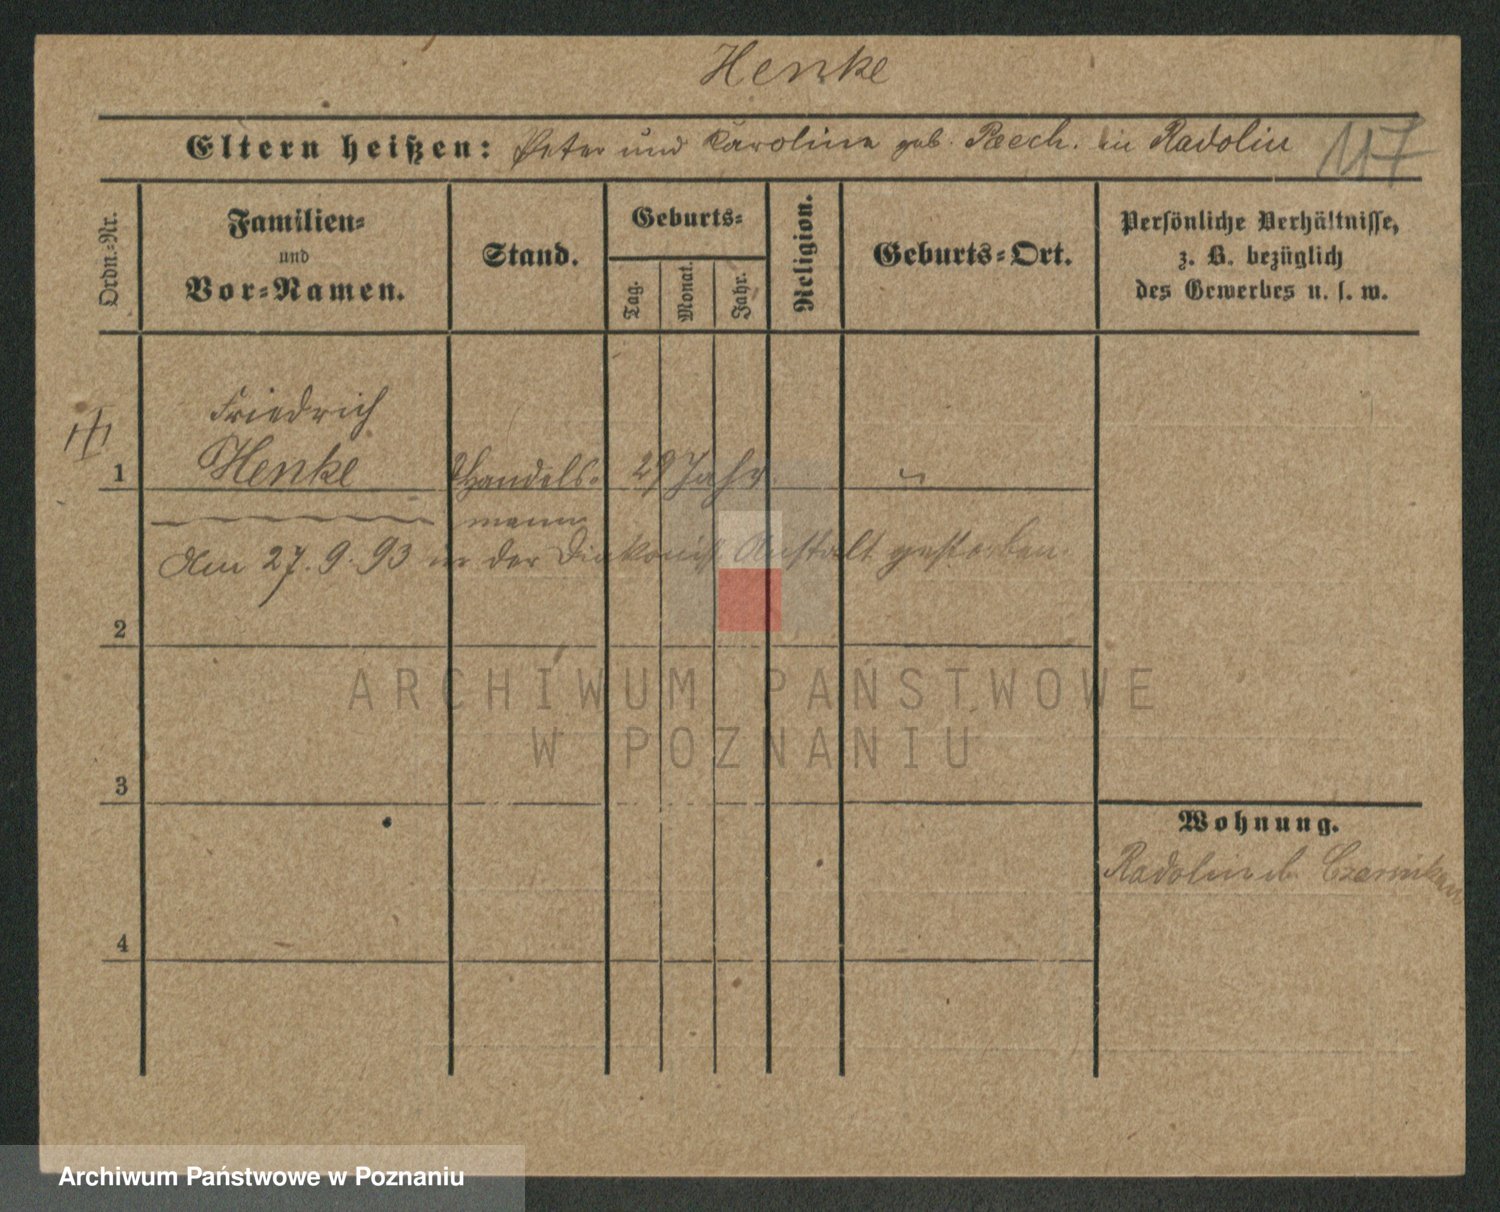 Henke
Eltern heißen: Peter und Karoline geb. Paech. in Radolin 117
Ordn.-Nr.
Familien-
und
Vor-Namen.
Stand.
Geburts-
Tag.
Monat.
Jahr.
Religion.
Geburts-Ort.
Persönliche Verhältnisse,
z. B. bezüglich
des Gewerbes u. s. w.
Friedrich
1 Henke Handels- 29 Jahr.
mann
Am 27. 9. 93 in der Diakoniss. Anstalt gestorben.
2
ARCHIWUM PAŃSTWOWE
W POZNANIU
3
Wohnung.
Radolin b. Czarnikau
4
Archiwum Państwowe w Poznaniu